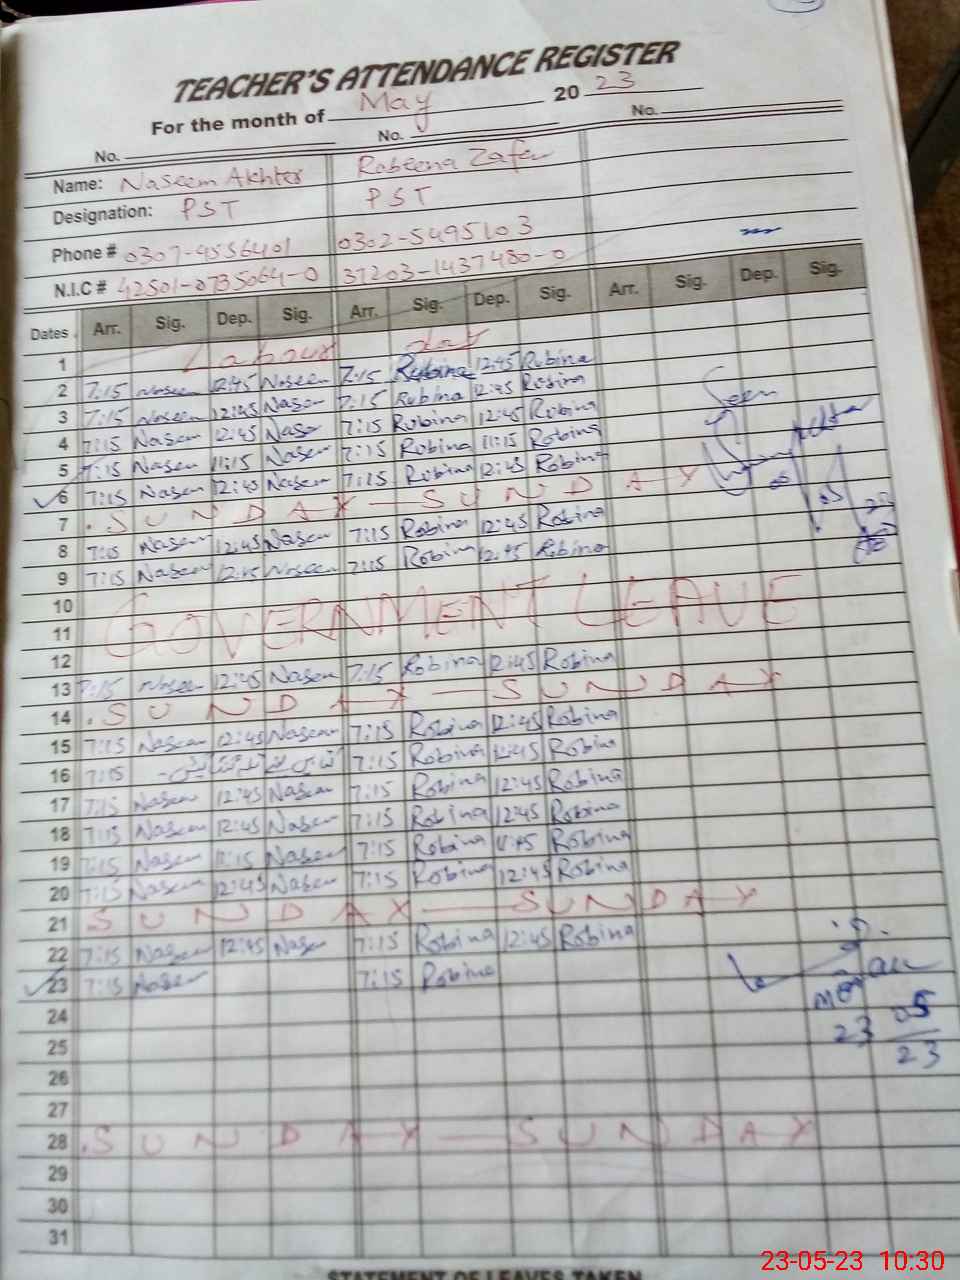 TEACHER'S ATTENDANCE REGISTER
For the month of May 2023
No. No. No.
Name: Naseem Akhter Robeena Zafer
Designation: PST PST
Phone # 0307-4556401 0302-5495103
N.I.C # 42501-0735064-0 37203-1437480-0
Dates Arr. Sig. Dep. Sig. Arr. Sig. Dep. Sig. Arr. Sig. Dep. Sig.
1 Labour day
2 7:15 Naseem 12:45 Naseem 7:15 Rubina 12:45 Rubina
3 7:15 Naseem 12:45 Nasem 7:15 Rubina 12:45 Robina
4 7:15 Nasem 12:45 Nasem 7:15 Robina 12:45 Robina
5 7:15 Nasem 11:15 Nasem 7:15 Robina 11:15 Robina
6 7:15 Nasem 12:45 Nasem 7:15 Robina 12:45 Robina
7 SUNDAY — SUNDAY
8 7:15 Nasem 12:45 Nasem 7:15 Robina 12:45 Robina
9 7:15 Nasem 12:45 Naseem 7:15 Robina 12:45 Robina
10
11 GOVERNMENT LEAVE
12
13 7:15 Naseem 12:45 Nasem 7:15 Robina 12:45 Robina
14 SUNDAY — SUNDAY
15 7:15 Nasem 12:45 Nasem 7:15 Robina 12:45 Robina
16 7:15 7:15 Robina 12:45 Robina
17 7:15 Nasem 12:45 Nasem 7:15 Robina 12:45 Robina
18 7:15 Nasem 12:45 Nasem 7:15 Robina 12:45 Robina
19 7:15 Nasem 11:15 Nasem 7:15 Robina Robina
20 7:15 Nasem 12:45 Nasem 7:15 Robina 12:45 Robina
21 SUNDAY — SUNDAY
22 7:15 Nasem 12:45 Nasem 7:15 Robina 12:45 Robina
23 7:15 Nasem 7:15 Robina
24
23 05
25
23
26
27
28 SUNDAY — SUNDAY
29
30
31
23-05-23 10:30
STATEMENT OF LEAVES TAKEN